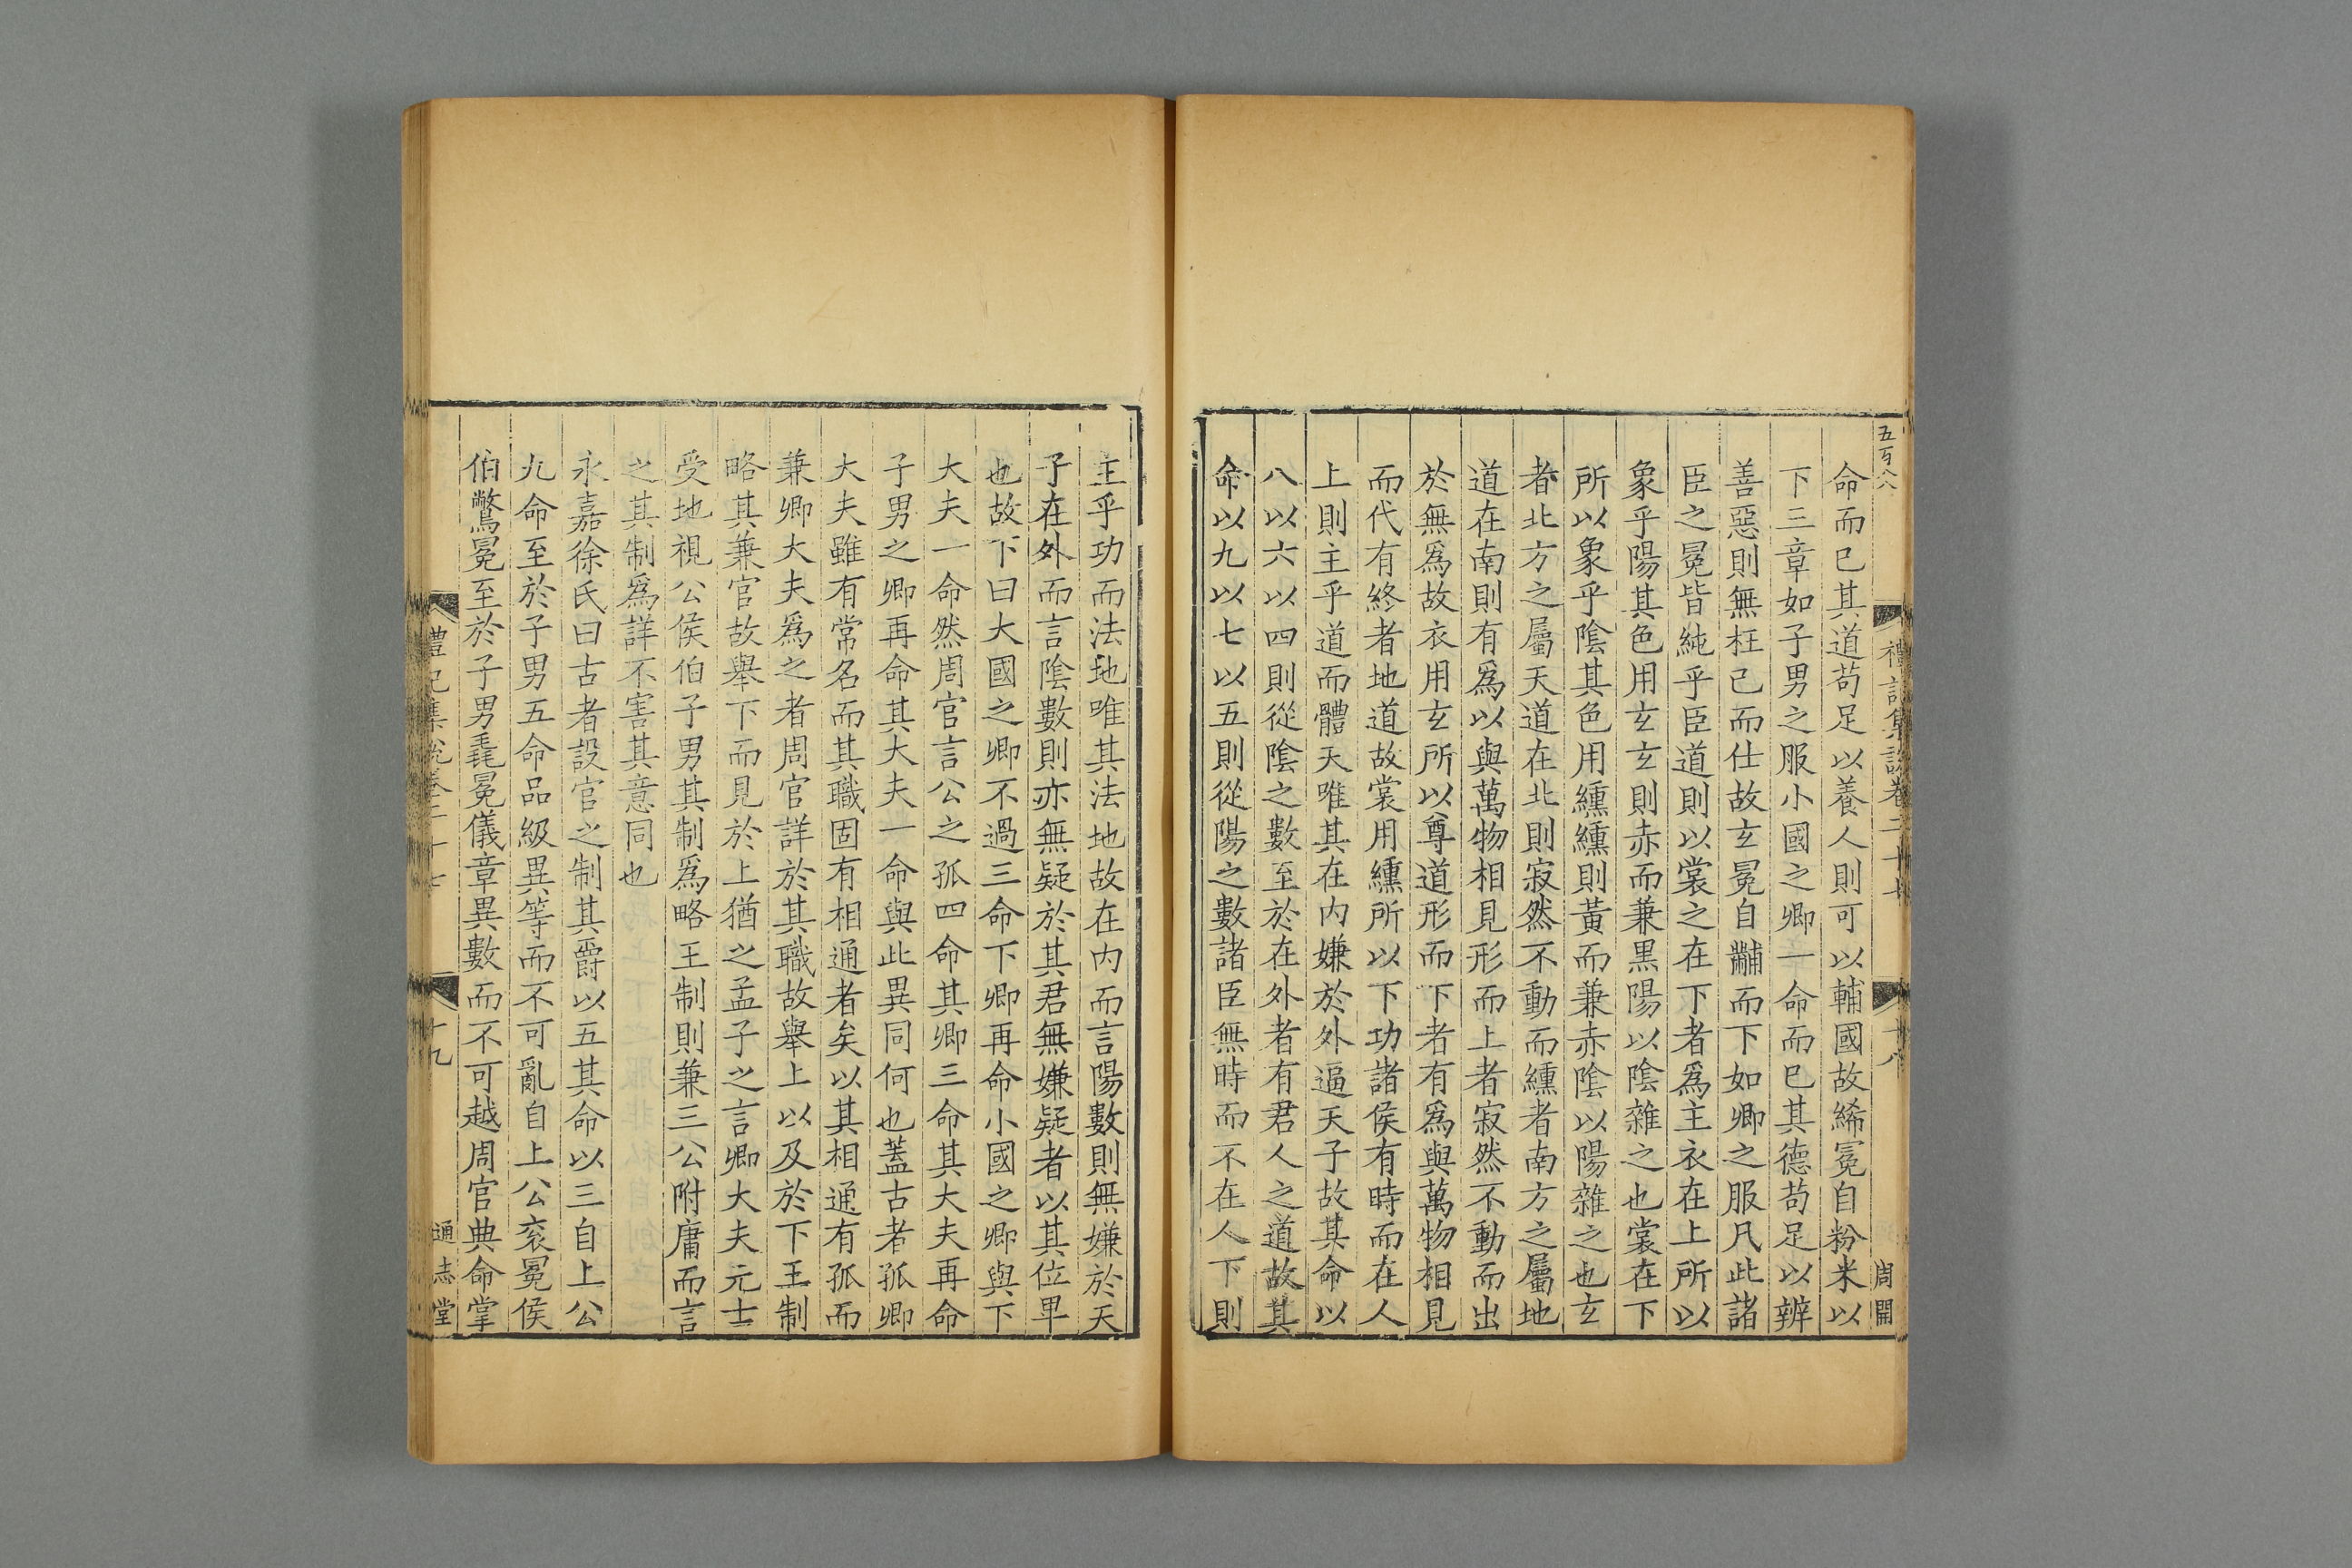 五百八
禮記集說卷二十七
十八
周開
命而已其道苟足以養人則可以輔國故絺冕自粉米以
下三章如子男之服小國之卿一命而已其德苟足以辨
善惡則無枉己而仕故玄冕自黼而下如卿之服凡此諸
臣之冕皆純乎臣道則以裳之在下者爲主衣在上所以
象乎陽其色用玄玄則赤而兼黒陽以陰雜之也裳在下
所以象乎陰其色用纁纁則黃而兼赤陰以陽雜之也玄
者北方之屬天道在北則寂然不動而纁者南方之屬地
道在南則有爲以與萬物相見形而上者寂然不動而出
於無爲故衣用玄所以尊道形而下者有爲與萬物相見
而代有終者地道故裳用纁所以下功諸侯有時而在人
上則主乎道而體天唯其在内嫌於外逼天子故其命以
八以六以四則從陰之數至於在外者有君人之道故其
命以九以七以五則從陽之數諸臣無時而不在人下則
主乎功而法地唯其法地故在内而言陽數則無嫌於天
子在外而言陰數則亦無疑於其君無嫌疑者以其位卑
也故下曰大國之卿不過三命下卿再命小國之卿與下
大夫一命然周官言公之孤四命其卿三命其大夫再命
子男之卿再命其大夫一命與此異同何也蓋古者孤卿
大夫雖有常名而其職固有相通者矣以其相通有孤而
兼卿大夫爲之者周官詳於其職故舉上以及於下王制
略其兼官故舉下而見於上猶之孟子之言卿大夫元士
受地視公侯伯子男其制爲略王制則兼三公附庸而言
之其制爲詳不害其意同也
永嘉徐氏曰古者設官之制其爵以五其命以三自上公
九命至於子男五命品級異等而不可亂自上公衮冕侯
伯鷩冕至於子男毳冕儀章異數而不可越周官典命掌
禮記集說卷二十七
十九
通志堂